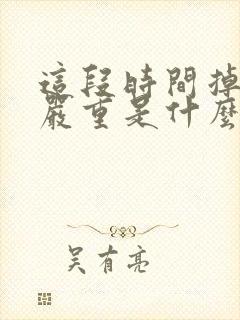 這段時間掉
嚴重是什麼
吴有亮